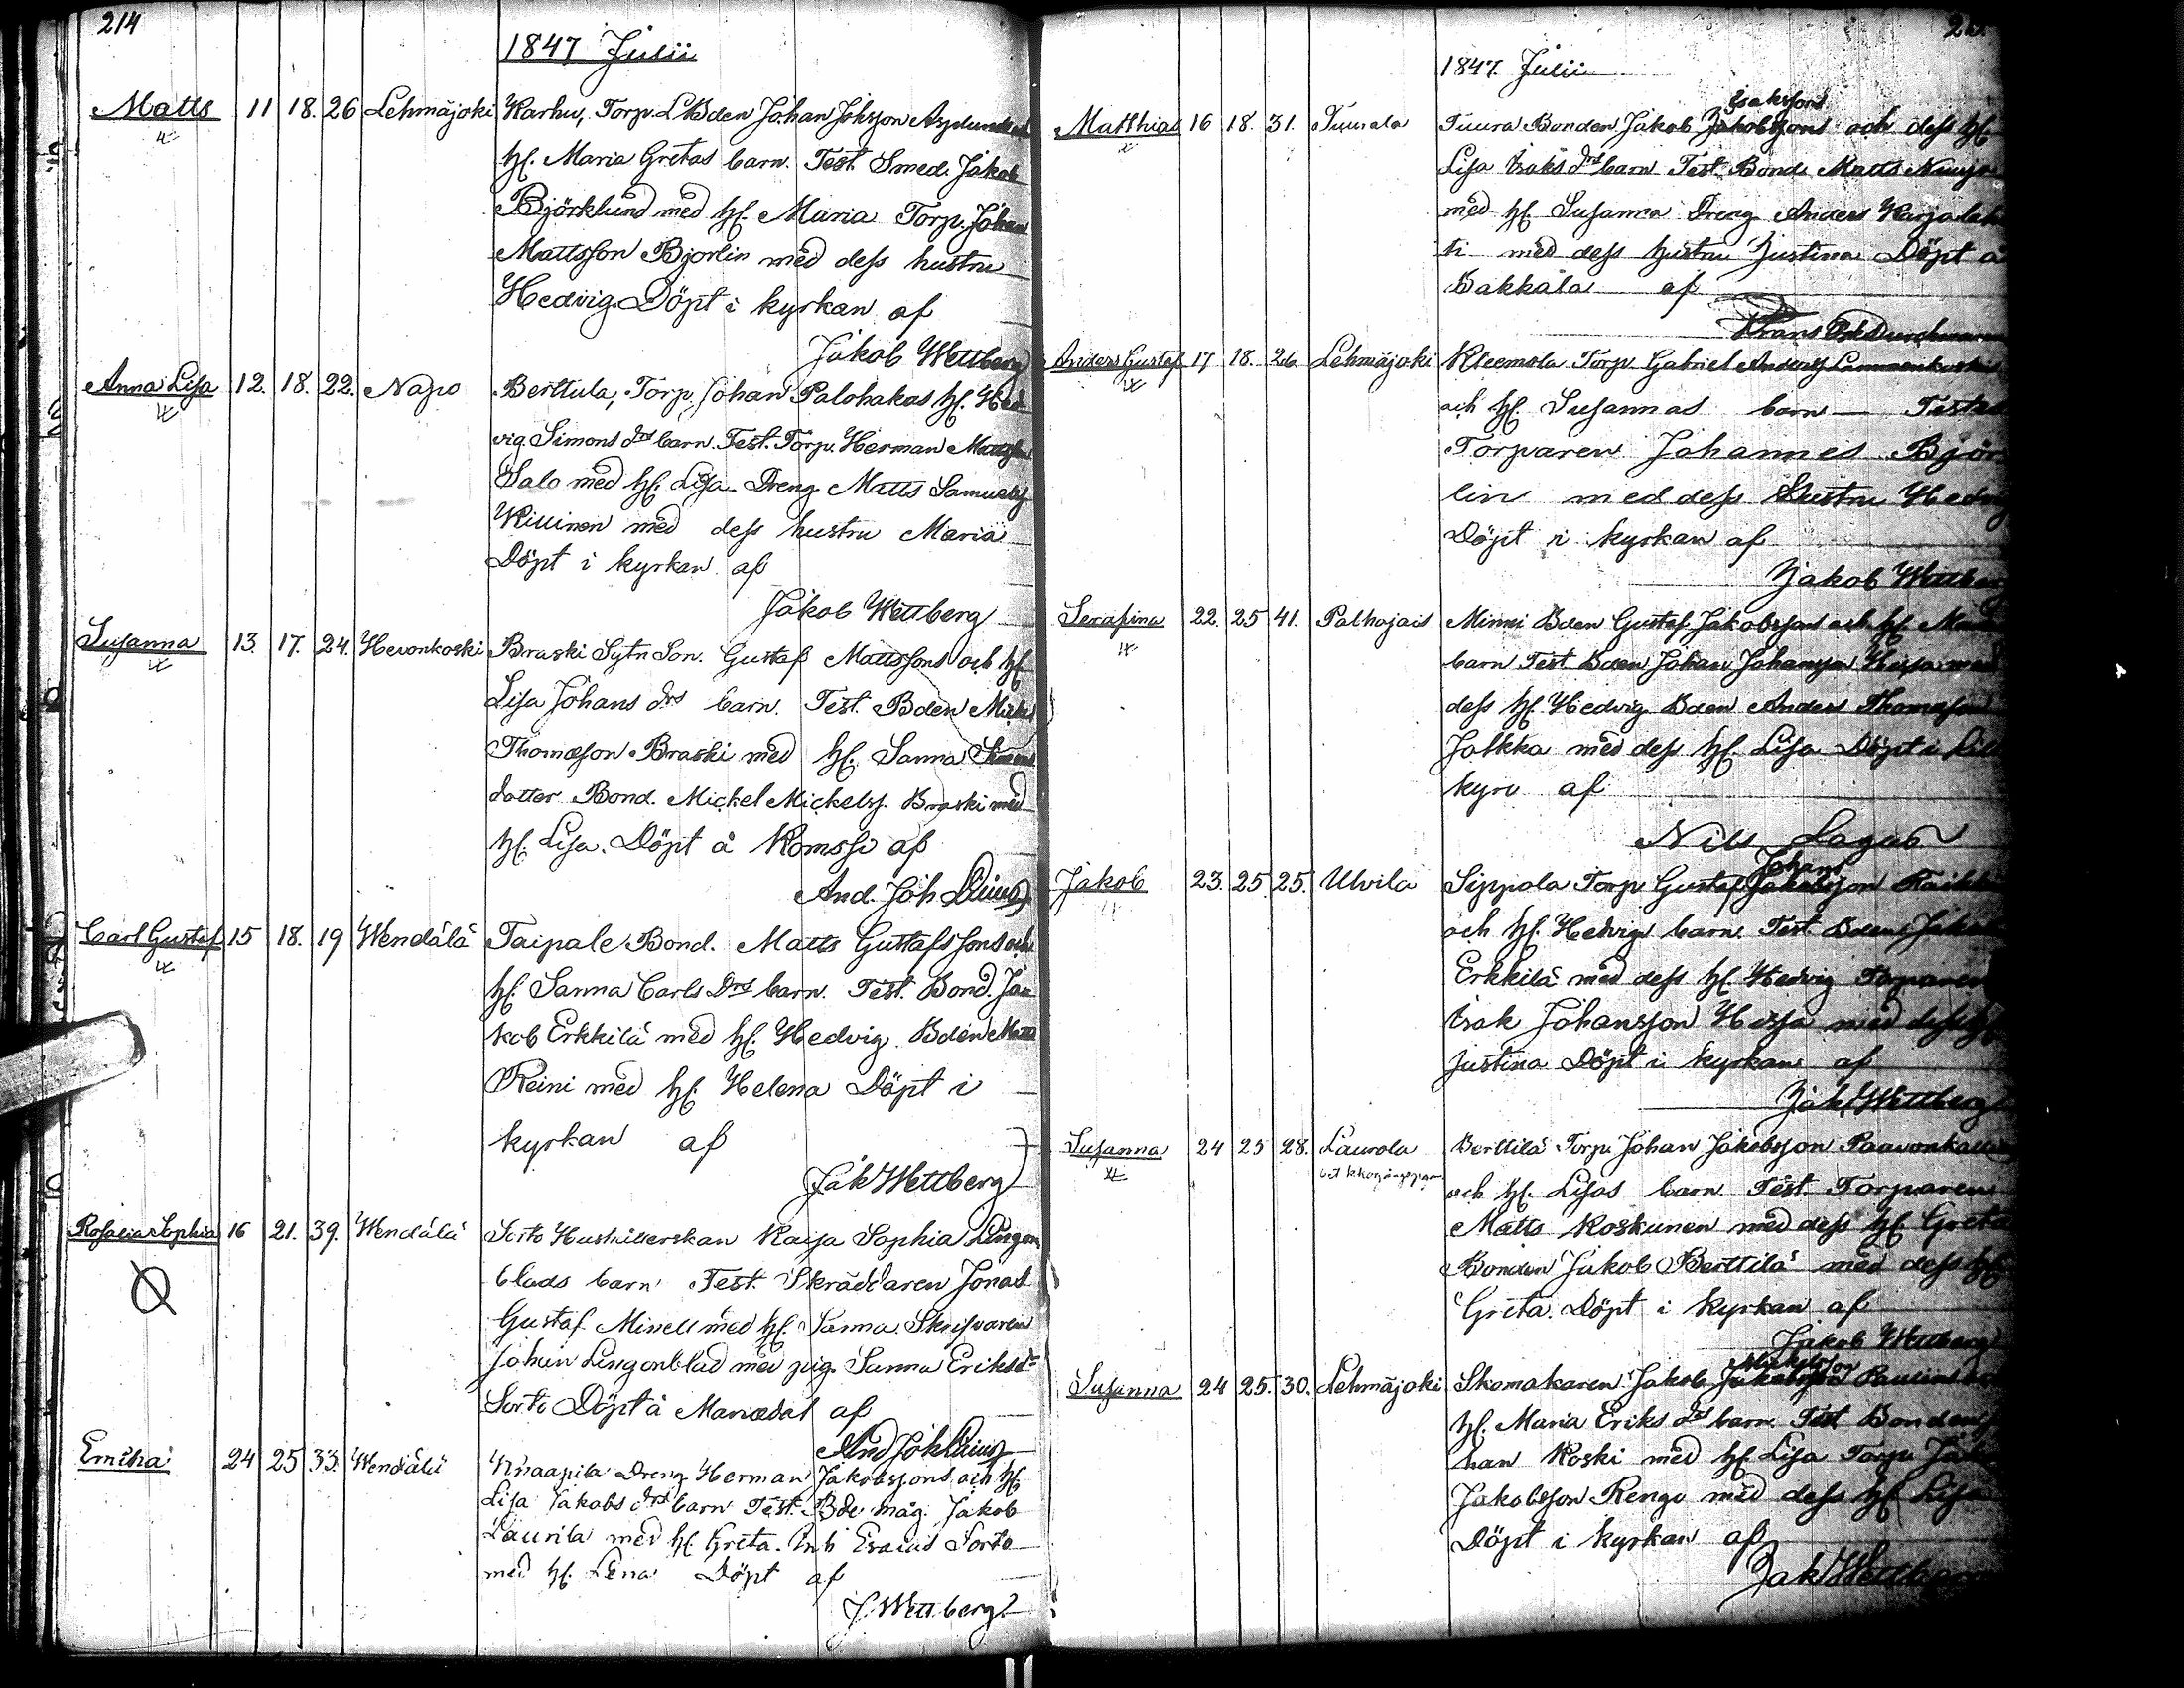 214
1847 Julii
Matts 11 18. 26 Lehmäjoki Karhu, Torp. L Bden Johan Johsson Asplunds och
hf. Maria Gretas barn. Test. Smed. Jakob
Björklund med hf. Maria Torp. Johan
Mattsson Bjorlin med dess hustru
Hedvig. Döpt i kyrkan af
Jakob Wettberg
Anna Lisa 12. 18. 22. Napo Berttula, Torp. Johan Palohakas hf. Hed
vig Simons drs barn. Test. Torp. Herman Mattsson
Salo med hf. Lisa. Dreng Matts Samuelsf
med dess hustru Maria
Döpt i kyrkan af
Jakob Wettberg
Susanna 13. 17. 24. Hevonkoski Braski Sytn Son. Gustaf Mattssons och hf
Lisa Johans drs barn. Test. Bden Mickel
Thomasson Braski med hf. Sanna Simons
dotter Bond. Mickel Mickelss. Braski med
hf. Lisa. Döpt å Komssi af
And. Joh
Carl Gustaf 15 18. 19 Wendälä Taipale Bond. Matts Gustafs sons och
hf. Sanna Carls Drs barn. Test. Bond. Ja
kob Erkkilä med hf. Hedvig. Bden Matts
Reini med hf. Helena Döpt i
kyrkan af
Jak Wettberg
Rosalia Sophia 16 21. 39. Wendälä Sorto Kaisa Sophia Lingon
blads barn Test. Skräddaren Jonas
Gustaf Minell med hf. Sanna. Skrifvaren
Johan Lingonblad med pig. Sanna Eriksdr
Sorto Döpt å Mariædal af
And Joh
24 25 33. Wendälä Knaapila Dreng Herman Jakobssons och hf
Lisa Jakobs drs barn Test. Bde måg. Jakob
Laurila med hf Greta. Inh Esaias Sorto
med hf. Lena Döpt af
J. Wettberg
1847. Julii
Isakssons
Matthias 16 18. 31. Tuurala Tuura Bonden Jakob Jakobssons och dess hf
Lisa Isaks drs barn Test. Bond. Matts
med hf. Susanna Dreng Anders Karjalah
ti med dess hustru Justina Döpt å
af
Frans
Anders Gustaf 17 18. 26 Lehmäjoki Kleemola Torp. Gabriel Andersf
och hf. Susannas barn Test
Torparen Johannes Björ
lin med dess Hustru Hedvig
Döpt i kyrkan af
Jakob Wettberg
Serafina 22. 25 41. Palhojais Minni Bden Gustaf Jakobssons och hf.
barn Test Bden Johan Johansson Heisa med
dess hf. Hedvig Bden Anders Thomasson
Jalkka med dess hf. Lisa Döpt i Lill
kyro af
Nils Lagus
Johans
Jakob 23. 25. 25. Ulvila Sippola Torp Gustaf Jakobsson
och hf. Hedvigs barn. Test. Bden Jakob
Erkkilä med dess hf. Hedvig Torparen
Isak Johansson Heisa med dess hf
Justina Döpt i kyrkan af
Jak. Wettberg
Susanna 24 25 28. Laurola Berttilä Torp. Johan Jakobsson
och hf. Lisas barn Test. Torparen
Matts Koskunen med dess hf. Greta
Bonden Jakob Berttilä med dess hf
Greta. Döpt i kyrkan af
Jakob Wettberg
Mickelsson
Susanna 24 25. 30. Lehmäjoki Skomakaren Jakob Jakobsson
hf. Maria Eriks drs barn. Test Bonden Jo
han Koski med hf. Lisa Torp. Jak
Jakobsson Rengo med dess hf Lisa
Döpt i kyrkan af
Jak Wettberg